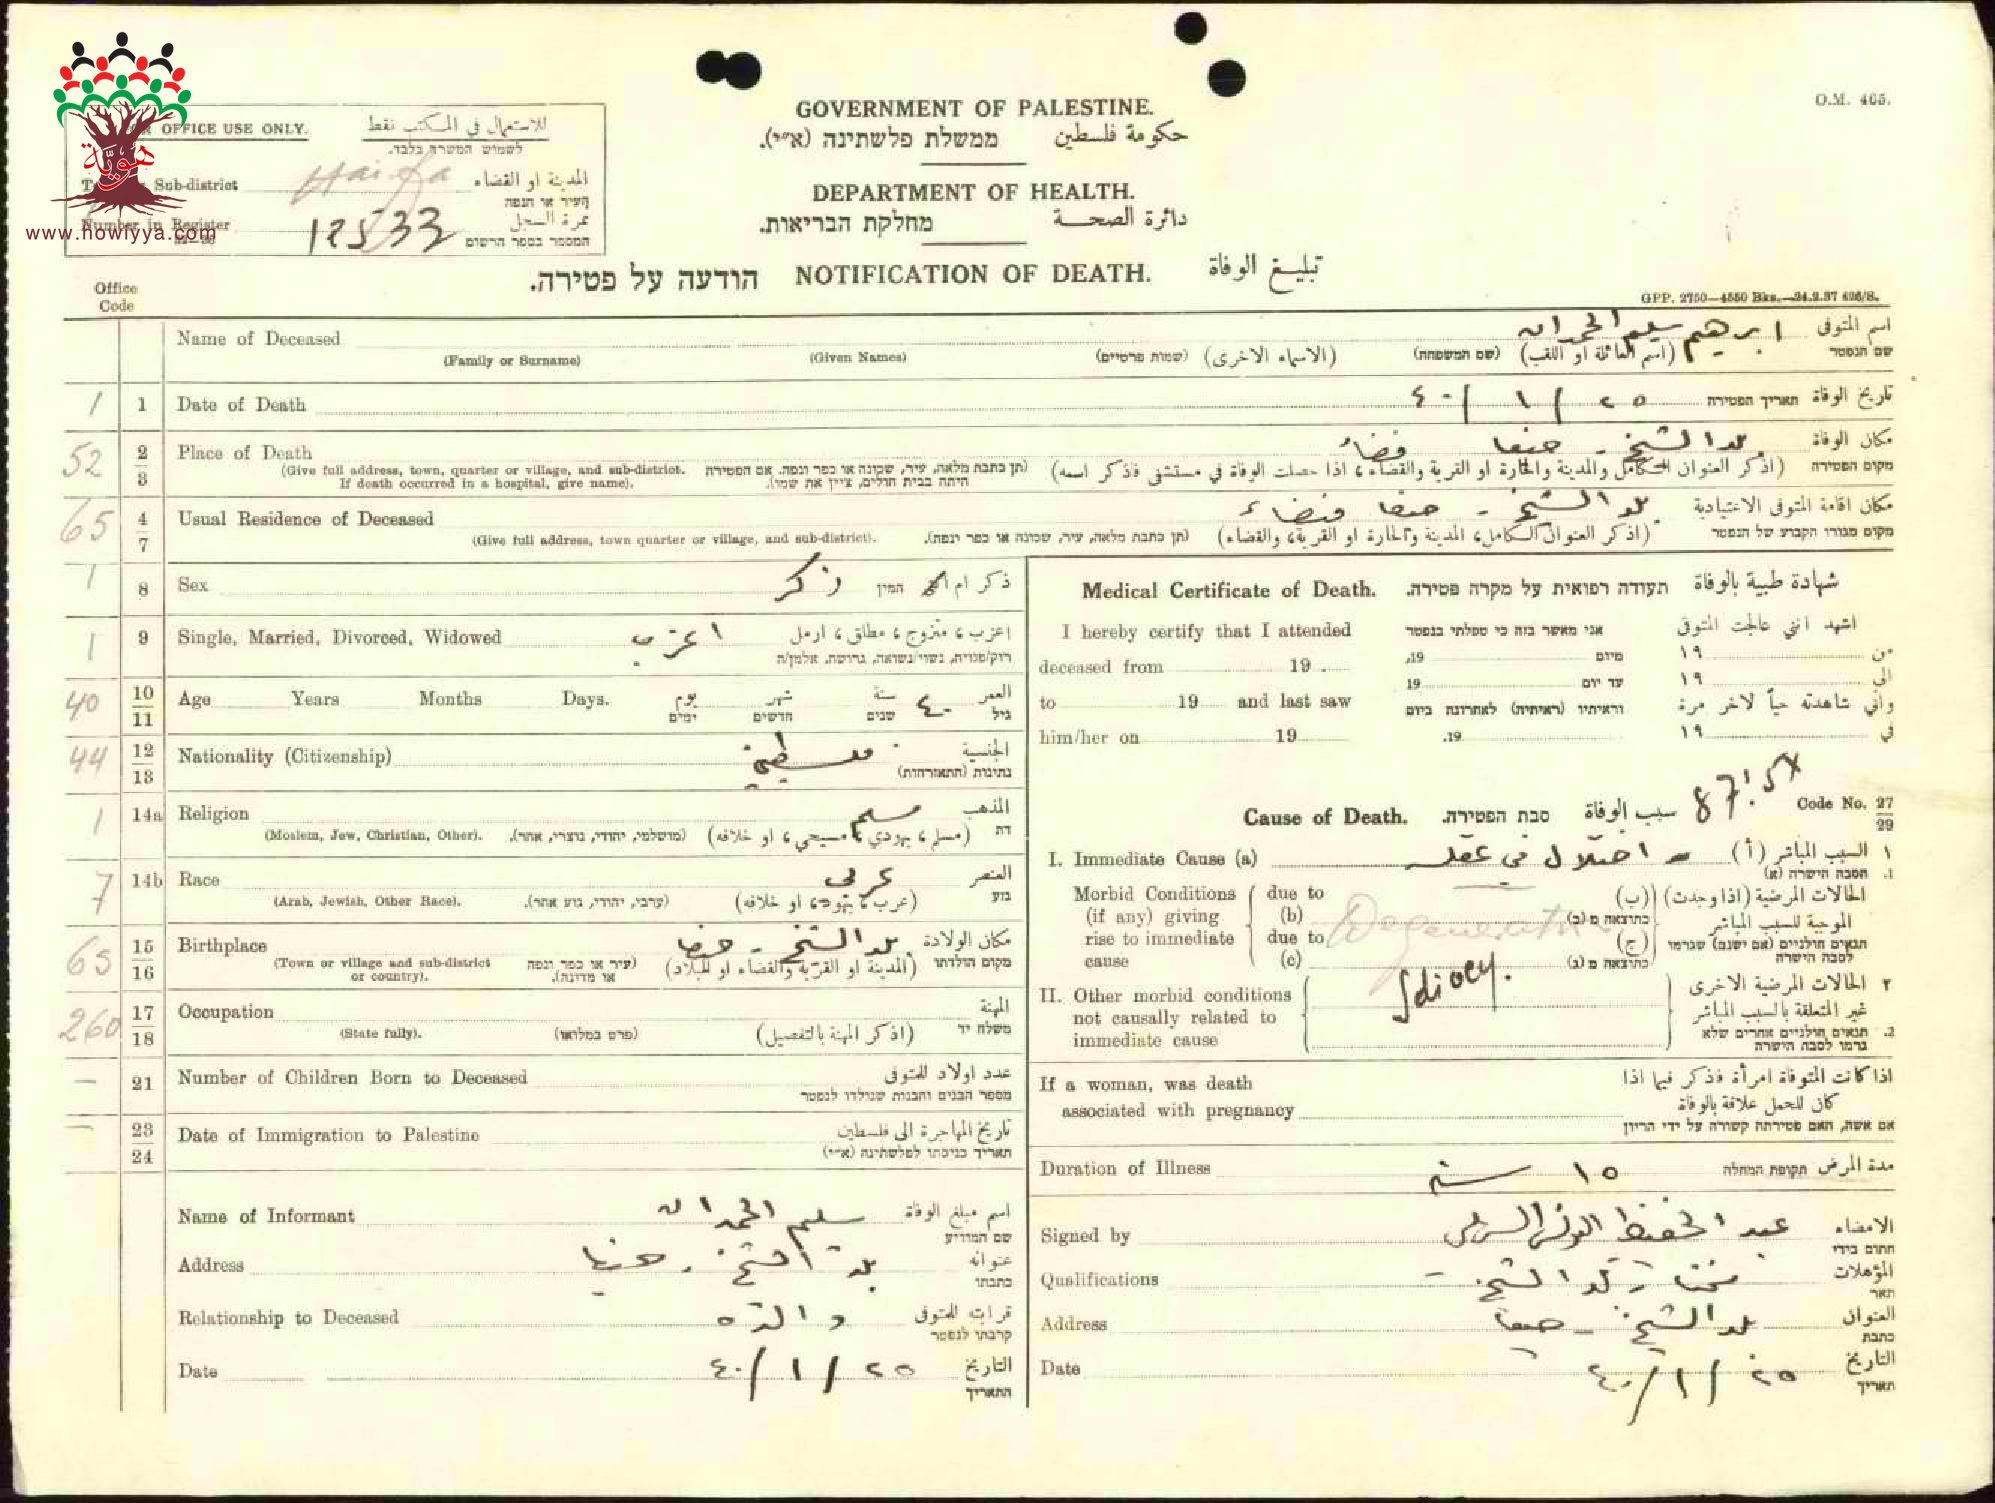 O.M. 465.
GOVERNMENT OF PALESTINE.
ממשלת פלשתינה (א״י). حكومة فلسطين
DEPARTMENT OF HEALTH.
מחלקת הבריאות. دائرة الصحة
הודעה על פטירה. NOTIFICATION OF DEATH. تبليغ الوفاة
GPP. 2750—4550 Bks.—24.2.37 426/S.
هوية
www.howiyya.com
OFFICE USE ONLY. للاستعمال في المكتب فقط
לשמוש המשרד בלבד.
Sub-district Haifa المدينة او القضاء
העיר או הנפה
Number in Register 12533 نمرة السجل
המספר בספר הרשום
Office
Code
Name of Deceased ابرهيم سليم الحمدان اسم المتوفى
(Family or Surname) (Given Names) (שמות פרטיים) (الاسماء الاخرى) (שם המשפחה) (اسم العائلة او اللقب) שם הנפטר
1 1 Date of Death ٢٥ / ١ / ٤٠ תאריך הפטירה تاريخ الوفاة
52 2 3 Place of Death بلد الشيخ - حيفا قضاء مكان الوفاة
(Give full address, town, quarter or village, and sub-district. (תן כתבת מלאה, עיר, שכונה או כפר ונפה. אם הפטירה (اذكر العنوان الكامل والمدينة والحارة او القرية والقضاء، اذا حصلت الوفاة في مستشفى فاذكر اسمه) מקום הפטירה
If death occurred in a hospital, give name). היתה בבית חולים, ציין את שמו).
65 4 7 Usual Residence of Deceased بلد الشيخ - حيفا قضاء مكان اقامة المتوفى الاعتيادية
(Give full address, town quarter or village, and sub-district). (תן כתבת מלאה, עיר, שכונה או כפר ונפה). (اذكر العنوان الكامل، المدينة والحارة او القرية، والقضاء) מקום מגוריו הקבוע של הנפטר
1 8 Sex ذكر המין ذكر ام
1 9 Single, Married, Divorced, Widowed اعزب اعزب، متزوج، مطلق، ارمل
רוק/פנויה, נשוי/נשואה, גרושה, אלמן/ה
40 10 11 Age Years Months Days. يوم شهر ٤٠ سنة العمر
ימים חדשים שנים גיל
44 12 13 Nationality (Citizenship) الجنسية
נתינות (התאזרחות)
1 14a Religion مسلم المذهب
(Moslem, Jew, Christian, Other). (מושלמי, יהודי, נוצרי, אחר). (مسلم، يهودي، مسيحي، او خلافه) דת
7 14b Race عربي العنصر
(Arab, Jewish, Other Race). (ערבי, יהודי, גזע אחר). (عرب، يهود، او خلافه) גזע
65 15 16 Birthplace بلد الشيخ - حيفا مكان الولادة
(Town or village and sub-district or country). (עיר או כפר ונפה או מדינה). (المدينة او القرية والقضاء او البلاد) מקום הולדתו
260 17 18 Occupation المهنة
(State fully). (פרט במלואו) (اذكر المهنة بالتفصيل) משלח יד
— 21 Number of Children Born to Deceased عدد اولاد المتوفى
מספר הבנים והבנות שנולדו לנפטר
— 23 24 Date of Immigration to Palestine تاريخ المهاجرة الى فلسطين
תאריך כניסתו לפלשתינה (א״י)
Name of Informant سليم الحمدان اسم مبلغ الوفاة
שם המודיע
Address بلد الشيخ - حيفا عنوانه
כתבתו
Relationship to Deceased والده قرابته للمتوفى
קרבתו לנפטר
Date ٢٥ / ١ / ٤٠ التاريخ
התאריך
Medical Certificate of Death. תעודה רפואית על מקרה פטירה. شهادة طبية بالوفاة
I hereby certify that I attended אני מאשר בזה כי טפלתי בנפטר اشهد انني عالجت المتوفى
deceased from 19 . 19, מיום ١٩ من
19 עד יום ١٩ الى
to 19 and last saw וראיתיו (ראיתיה) לאחרונה ביום واني شاهدته حياً لاخر مرة
him/her on 19 19. ١٩ في
Cause of Death. סבת הפטירה. سبب الوفاة Code No. 27 29
I. Immediate Cause (a) اختلال في عقله السبب المباشر (أ) ١
הסבה הישרה (א) .1
Morbid Conditions due to الحالات المرضية (اذا وجدت) (ب)
(if any) giving (b) Degeneration כתוצאה מ(ב) الموجبة للسبب المباشر
rise to immediate due to (ج) תנאים חולניים (אם ישנם) שגרמו
cause (c) כתוצאה מ(ג) לסבה הישרה
Idiocy.
II. Other morbid conditions الحالات المرضية الاخرى ٢
not causally related to غير المتعلقة بالسبب المباشر
immediate cause תנאים חולניים אחרים שלא .2
גרמו לסבה הישרה
If a woman, was death اذا كانت المتوفاة امرأة فذكر فيما اذا
associated with pregnancy كان للحمل علاقة بالوفاة
אם אשה, האם פטירתה קשורה על ידי הריון
Duration of Illness ١٥ سنة תקופת המחלה مدة المرض
Signed by عبد الحفيظ الامضاء
חתום בידי
Qualifications مختار بلد الشيخ المؤهلات
תאר
Address بلد الشيخ - حيفا العنوان
כתבת
Date ٢٥ / ١ / ٤٠ التاريخ
תאריך